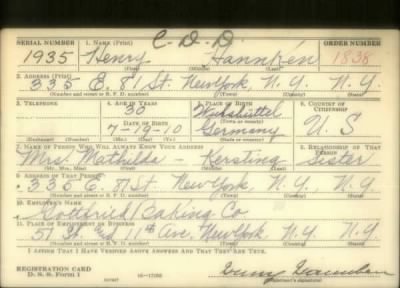 C-D-D
SERIAL NUMBER 1. NAME (Print) ORDER NUMBER
1935 Henry Hannken 1838
(First) (Middle) (Last)
2. ADDRESS (Print)
335 E. St. New York, N.Y. N.Y.
(Number and street or R. F. D. number) (Town) (County) (State)
3. TELEPHONE 4. AGE IN YEARS 5. PLACE OF BIRTH 6. COUNTRY OF CITIZENSHIP
30
DATE OF BIRTH (Town or county)
7-19-10 Germany U.S.
(Exchange) (Number) (Mo.) (Day) (Yr.) (State or country)
7. NAME OF PERSON WHO WILL ALWAYS KNOW YOUR ADDRESS 8. RELATIONSHIP OF THAT PERSON
Mrs. Mathilda - Kersting Sister
(Mr., Mrs., Miss) (First) (Middle) (Last)
9. ADDRESS OF THAT PERSON
E. St. New York N.Y., N.Y.
(Number and street or R. F. D. number) (Town) (County) (State)
10. EMPLOYER'S NAME
Gottfried Baking Co
11. PLACE OF EMPLOYMENT OR BUSINESS
51 St. and 11th Ave. New York N.Y. N.Y.
(Number and street or R. F. D. number) (Town) (County) (State)
I AFFIRM THAT I HAVE VERIFIED ABOVE ANSWERS AND THAT THEY ARE TRUE.
REGISTRATION CARD
D. S. S. Form 1 16-17105 Henry Hannken
(Registrant's signature)